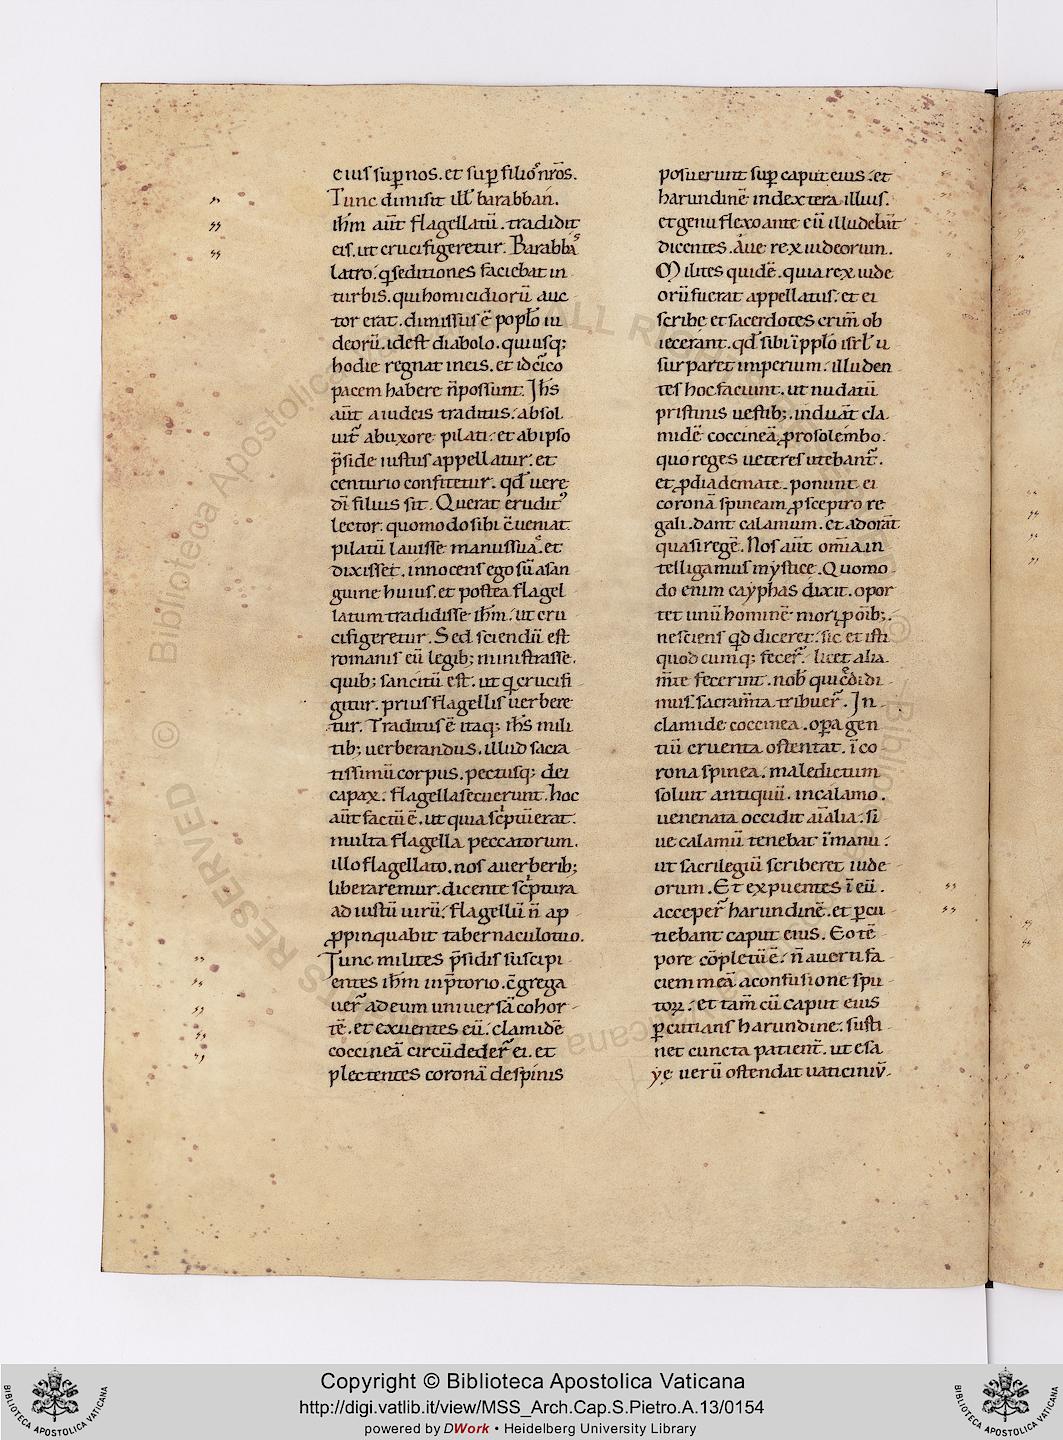 eius sup̱ nos. et sup̱ filioˢ nr̄os.
Tunc dimisit ill' barabban.
ih̄m aūt flagellatū. tradidit
eis. ut crucifigeretur. Barabbaˢ
latro. q̱ seditiones faciebat in
turbis. qui homicidiorū auc
tor erat. dimissus ē poplo iu
deorū. id est diabolo. qui usq;
hodie regnat in eis. et idcīco
pacem habere n̄ possunt. Ih̄s
aūt a iudeis traditus. absol
uit̄ ab uxore pilati. et ab ipso
p̄side iustus appellatur. et
centurio confitetur. qd̄ uere
dī filius sit. Querat erudit᾽
lector. quomodo sibi c̄ueniat
pilatū lauisse manus suaˢ. et
dixisset. innocens ego sū a san
guine huius. et postea flagel
latum tradidisse ih̄m. ut cru
cifigeretur. Sed sciendū est
romanis eū legib; ministrasse.
quib; sancitū est. ut q̱ crucifi
gitur. prius flagellis uerbere
tur. Traditus ē itaq; ih̄s mili
tib; uerberandus. illud sacra
tissimū corpus. pectusq; dei
capax. flagella secuerunt. hoc
aūt factū ē. ut quia sc̄ptū erat.
multa flagella peccatorum.
illo flagellato. nos a uerberib;
liberaremur. dicente sc̄ptura
ad iustū uirū. flagellū n̄ ap
p̱pinquabit tabernaculo tuo.
Tunc milites p̄sidis suscipi
entes ih̄m in p̄torio. c̄grega
uer̄ ad eum uniuersā cohor
tē. et exuentes eū. clamidē
coccineā circūdeder̄ ei. et
plectentes coronā de spinis
posuerunt sup̱ caput eius. et
harundinē in dextera illius.
et genu flexo ante eū illudebūt
dicentes. Aue rex iudeorum.
Milites quidē. quia rex iude
orū fuerat appellatus. et ei
scribe et sacerdotes crim̄ ob
iecerant. qd̄ sibi ī pplo isrl' u
surparet imperium. illuden
tes hoc faciunt. ut nudatū
pristinis uestib;. induāt cla
midē coccineā p̱ solo lembo.
quo reges ueteres utebant̄.
et p̱ diademate. ponunt ei
coronā spineam. p̱ sceptro re
gali. dant calamum. et adorāt
quasi regē. Nos aūt om̄ia in
telligamus mystice. Quomo
do enim cayphas dixit. opor
tet unū hominē mori p̱ om̄ib;.
nesciens qd̄ diceret. sic et isti
quodcumq; fecer̄. licet alia
m̄te fecerint. nob̄ qui c̄didi
mus. sacram̄ta tribuer̄. In
clamide coccinea. op̱a gen
tiū cruenta ostentat. ī co
rona spinea. maledictum
soluit antiquū. in calamo.
uenenata occidit aīalia. si
ue calamū tenebat ī manu.
ut sacrilegiū scriberet iude
orum. Et expuentes ī eū.
acceper̄ harundinē. et p̱cu
tiebant caput eius. Eo tē
pore cōpletū ē. n̄ auerti fa
ciem meā a confusione spu
torꝝ. et tam̄ cū caput eius
p̱cutians harundine. susti
net cuncta patient̄. ut esa
ye uerū ostendat uaticiniū.
Copyright © Biblioteca Apostolica Vaticana
http://digi.vatlib.it/view/MSS_Arch.Cap.S.Pietro.A.13/0154
powered by DWork • Heidelberg University Library